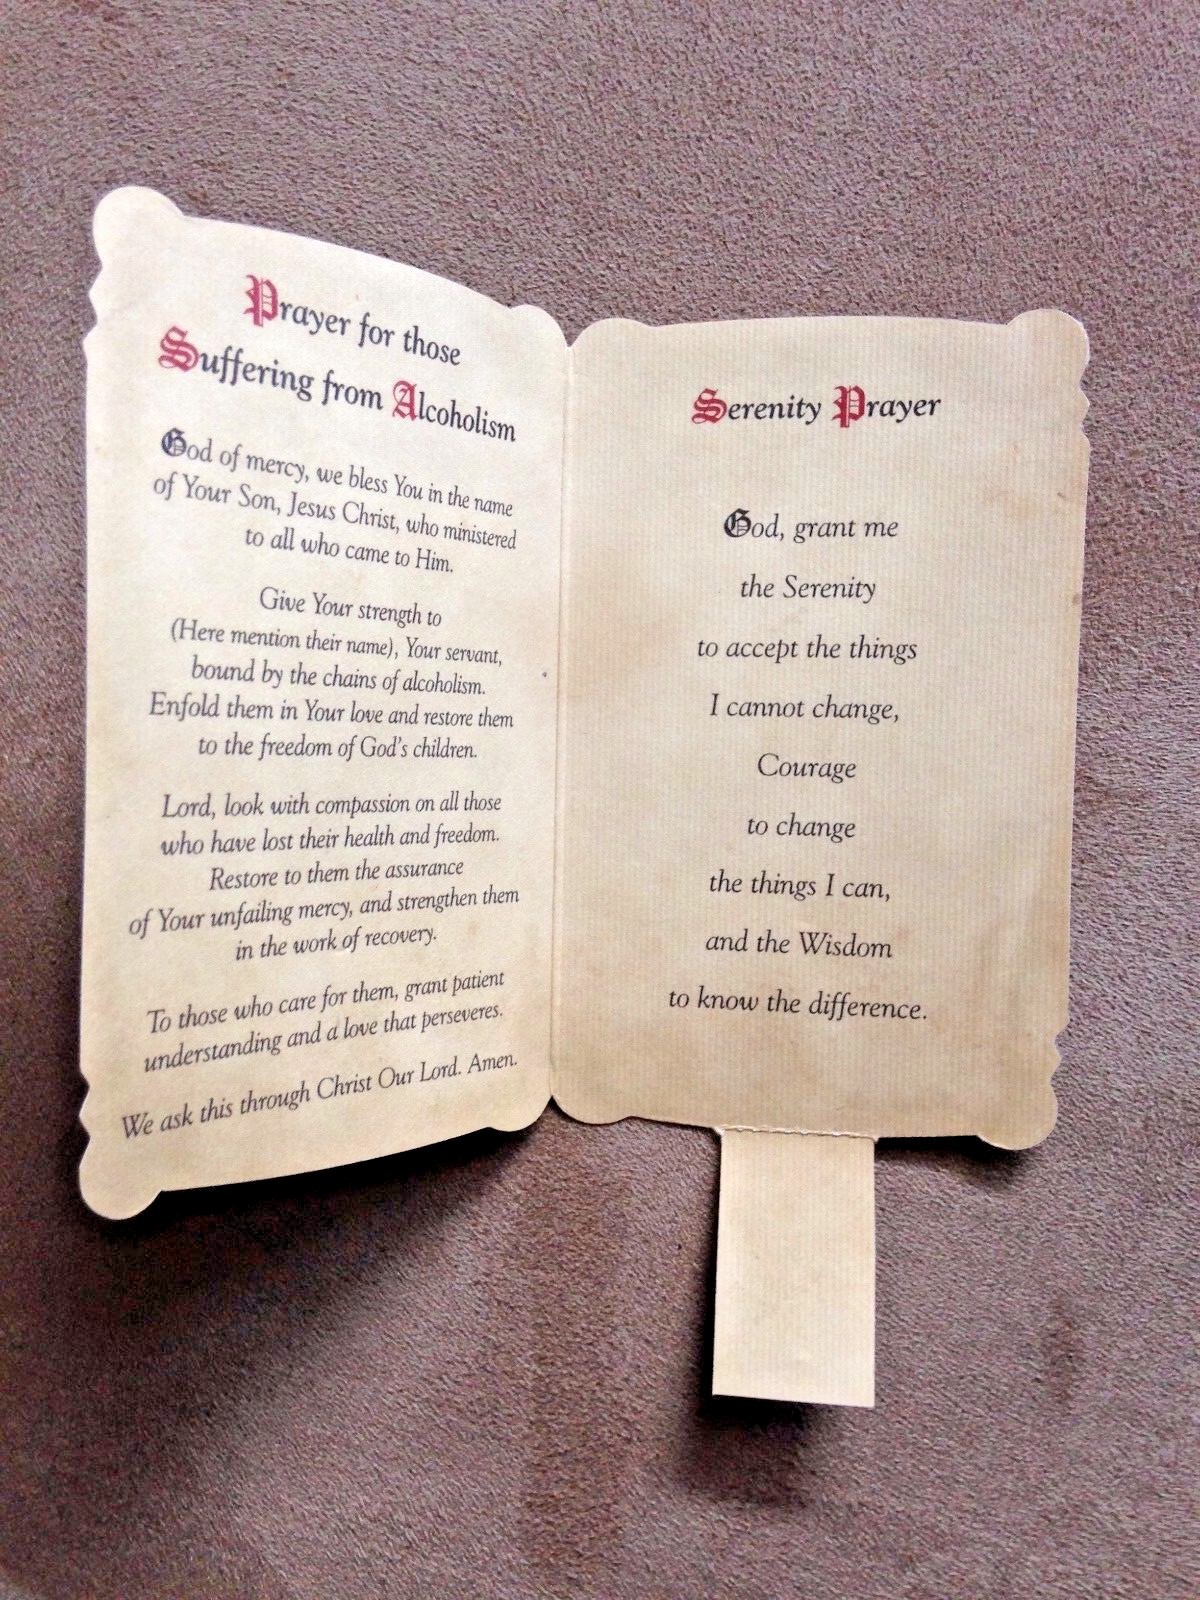 Prayer for those
Suffering from Alcoholism
God of mercy, we bless You in the name
of Your Son, Jesus Christ, who ministered
to all who came to Him.
Give Your strength to
(Here mention their name), Your servant,
bound by the chains of alcoholism.
Enfold them in Your love and restore them
to the freedom of God's children.
Lord, look with compassion on all those
who have lost their health and freedom.
Restore to them the assurance
of Your unfailing mercy, and strengthen them
in the work of recovery.
To those who care for them, grant patient
understanding and a love that perseveres.
We ask this through Christ Our Lord. Amen.
Serenity Prayer
God, grant me
the Serenity
to accept the things
I cannot change,
Courage
to change
the things I can,
and the Wisdom
to know the difference.